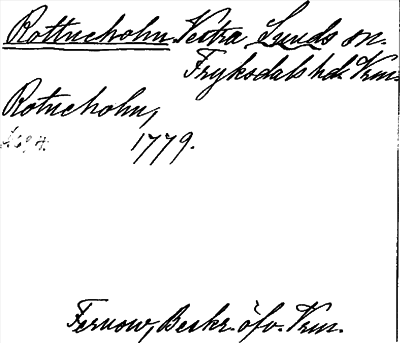 Rottneholm Västra Sunds sn.
Fryksdals hd. Vrm.
Rotneholm,
1779.
Fernow, Beskr. öfv. Vrm.